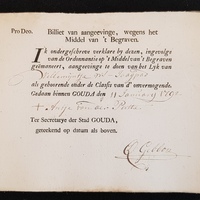 Pro Deo. Billiet van aangeevinge, wegens het
Middel van 't Begraven.
Ik ondergeschreve verklare by dezen, ingevolge
van de Ordonnantie op 't Middel van 't Begraven
geëmaneert, aangeevinge te doen van het Lyk van
als gehoorende onder de Classis van d' onvermogende.
Gedaan binnen GOUDA den 11 January
Ter Secretarye der Stad GOUDA,
geteekend op datum als boven.